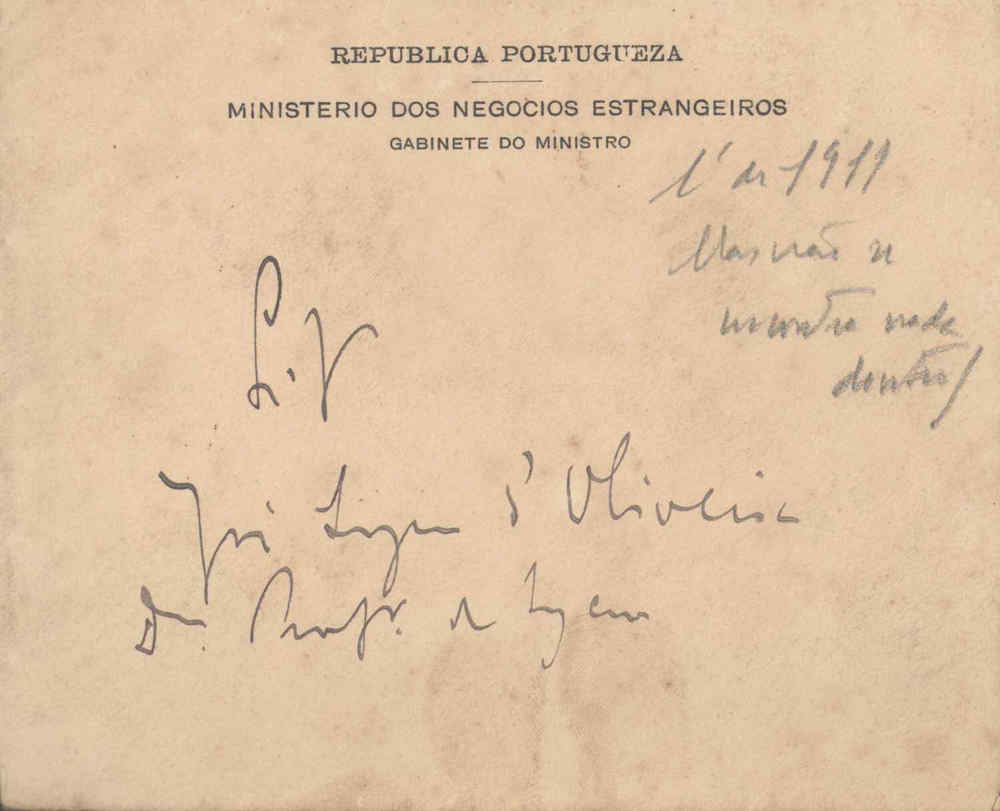 REPUBLICA PORTUGUEZA
MINISTERIO DOS NEGOCIOS ESTRANGEIROS
GABINETE DO MINISTRO
1911
Mas não se
encontra nada
dentro!
José d'Oliveira
Profr. de Lyceu